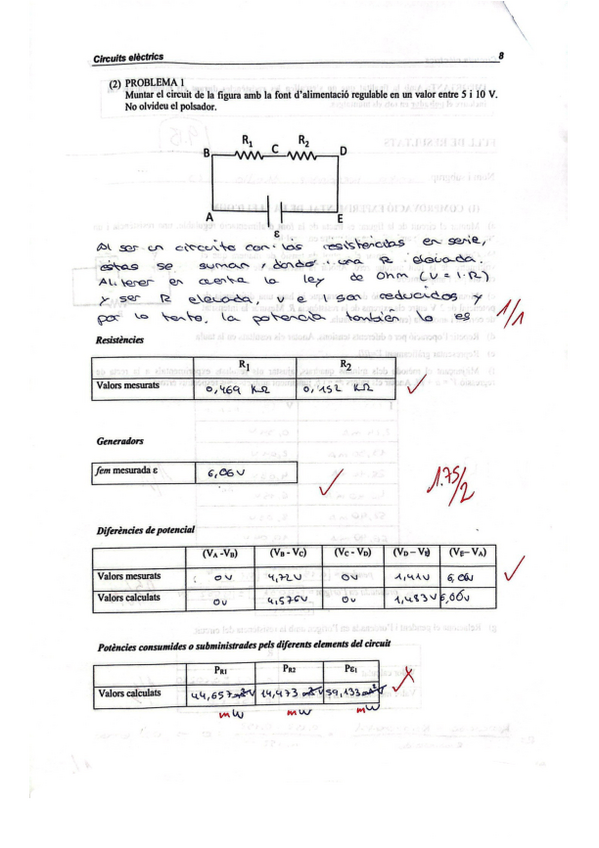 Circuits elèctrics 8
(2) PROBLEMA 1
Muntar el circuit de la figura amb la font d'alimentació regulable en un valor entre 5 i 10 V.
No olvideu el polsador.
R1 R2
B C D
A E
ε
Al ser un circuito con las resistencias en serie,
éstas se suman, dando una R elevada.
Al tener en cuenta la ley de Ohm (V = I·R)
y ser R elevada, V e I son reducidos y
por lo tanto, la potencia también lo es
1/1
Resistències
R1 R2
Valors mesurats 0,469 KΩ 0,152 KΩ
Generadors
fem mesurada ε 6,06V
1.75/2
Diferències de potencial
(VA -VB) (VB - VC) (VC - VD) (VD – VE) (VE– VA)
Valors mesurats 0V 4,72V 0V 1,41V 6,06V
Valors calculats 0V 4,576V 0V 1,483V 6,06V
Potències consumides o subministrades pels diferents elements del circuit
PR1 PR2 Pε1
Valors calculats 44,657 14,473 59,133
mW mW mW